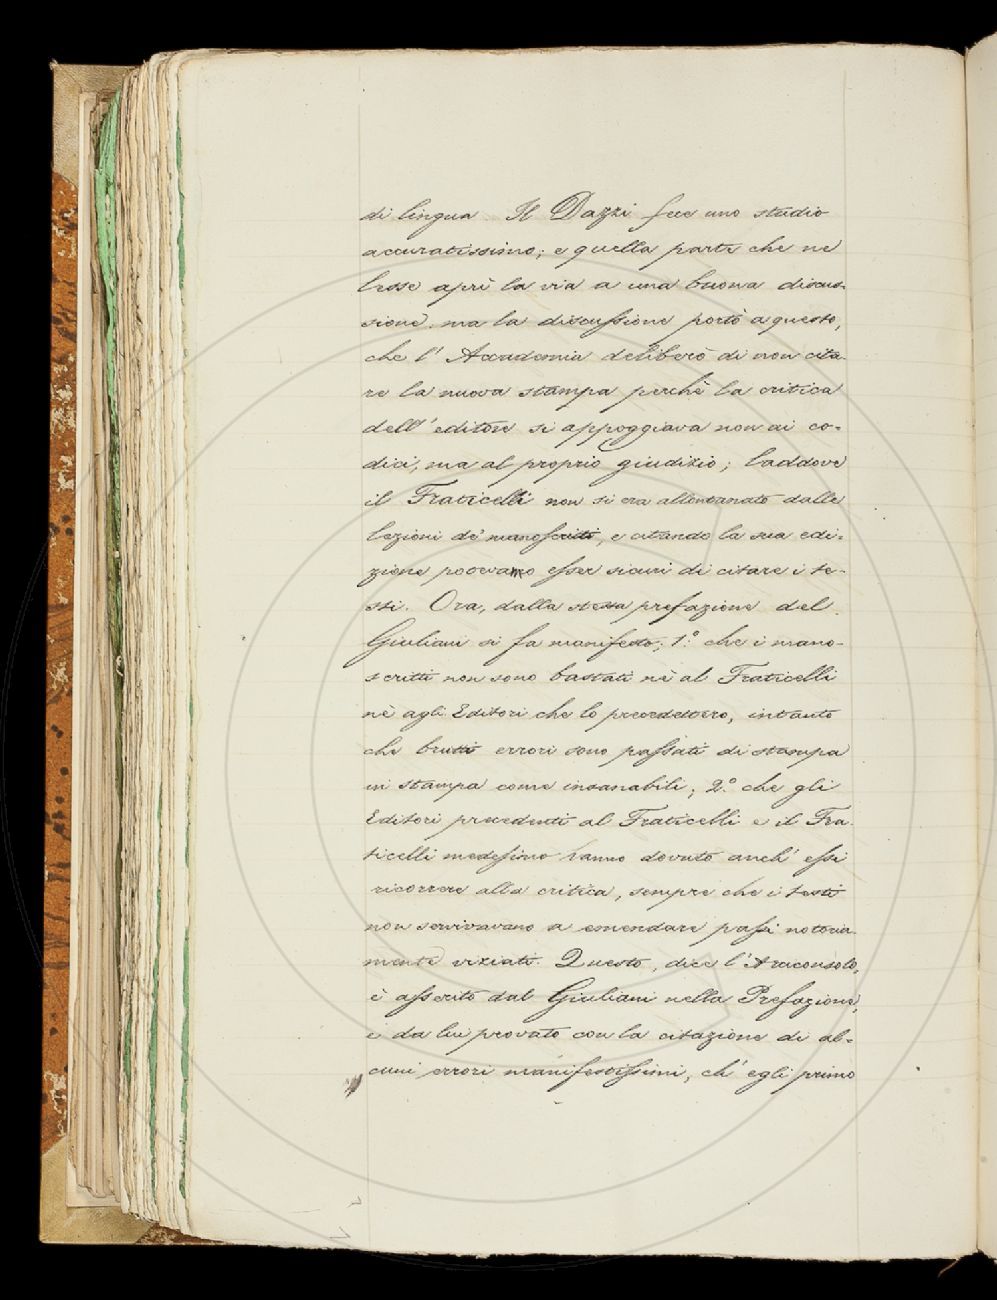 di lingua. Il Dazzi fece uno studio
accuratissimo; e quella parte che ne
lesse aprì la via a una buona discus-
sione. ma la discussione portò a questo,
che l' Accademia deliberò di non cita-
re la nuova stampa perchè la critica
dell' editore si appoggiava non ai co-
dici, ma al proprio giudizio; laddove
il Fraticelli non si era allontanato dalle
lezioni de' manoscritti, e citando la sua edi-
zione potevamo esser sicuri di citare i te-
sti. Ora, dalla stessa prefazione del
Giuliani si fa manifesto; 1.° che i mano-
scritti non sono bastati nè al Fraticelli
nè agli Editori che lo precedettero, intanto
che brutti errori sono passati di stampa
in stampa come insanabili; 2.° che gli
Editori precedenti al Fraticelli e il Fra-
ticelli medesimo hanno dovuto anch' essi
ricorrere alla critica, sempre che i testi
non servivavano a emendare passi notoria-
mente viziati. Questo, dice l' Arciconsolo,
è asserito dal Giuliani nella Prefazione,
e da lui provato con la citazione di al-
cuni errori manifestissimi, ch' egli primo